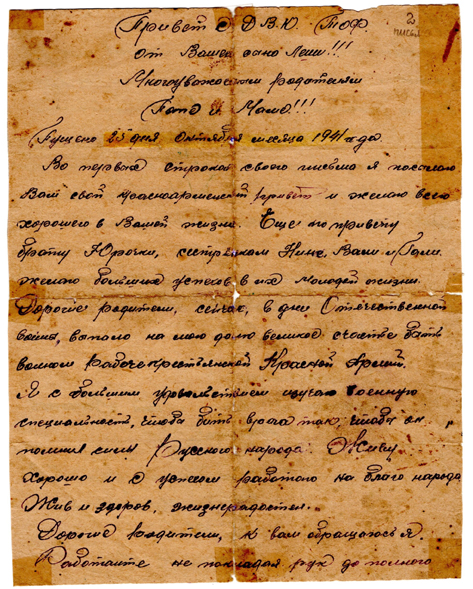 2
Привет с Д В.Ю. Тоф
От Вашего сына Леши!!!
Многоуважаемым родителям
Папа и Мама!!!
Пущено 25 дня Октября месяца 1941 года
Во первых строках своего письма я посылаю
Вам свой красноармейский привет и желаю всего
хорошего в Вашей жизни. Еще по привету
брату Юрочки, сестренкам Нине, Вали и Гали.
желаю больших успехов в их молодой жизни.
Дорогие родители, сейчас, в дни Отечественной
войны, выпало на мою долю великое счастье быть
воином Рабоче крестьянской Красной Армии.
Я с большим удовольствием изучаю военную
специальность, чтоб бить врага так, чтоб он
помнил силу Русского народа. Живу
хорошо и с успехом работаю на благо народа
Жив и здоров, жизнерадостен.
Дорогие родители, к вам обращаюсь я.
Работайте не покладая рук до полного